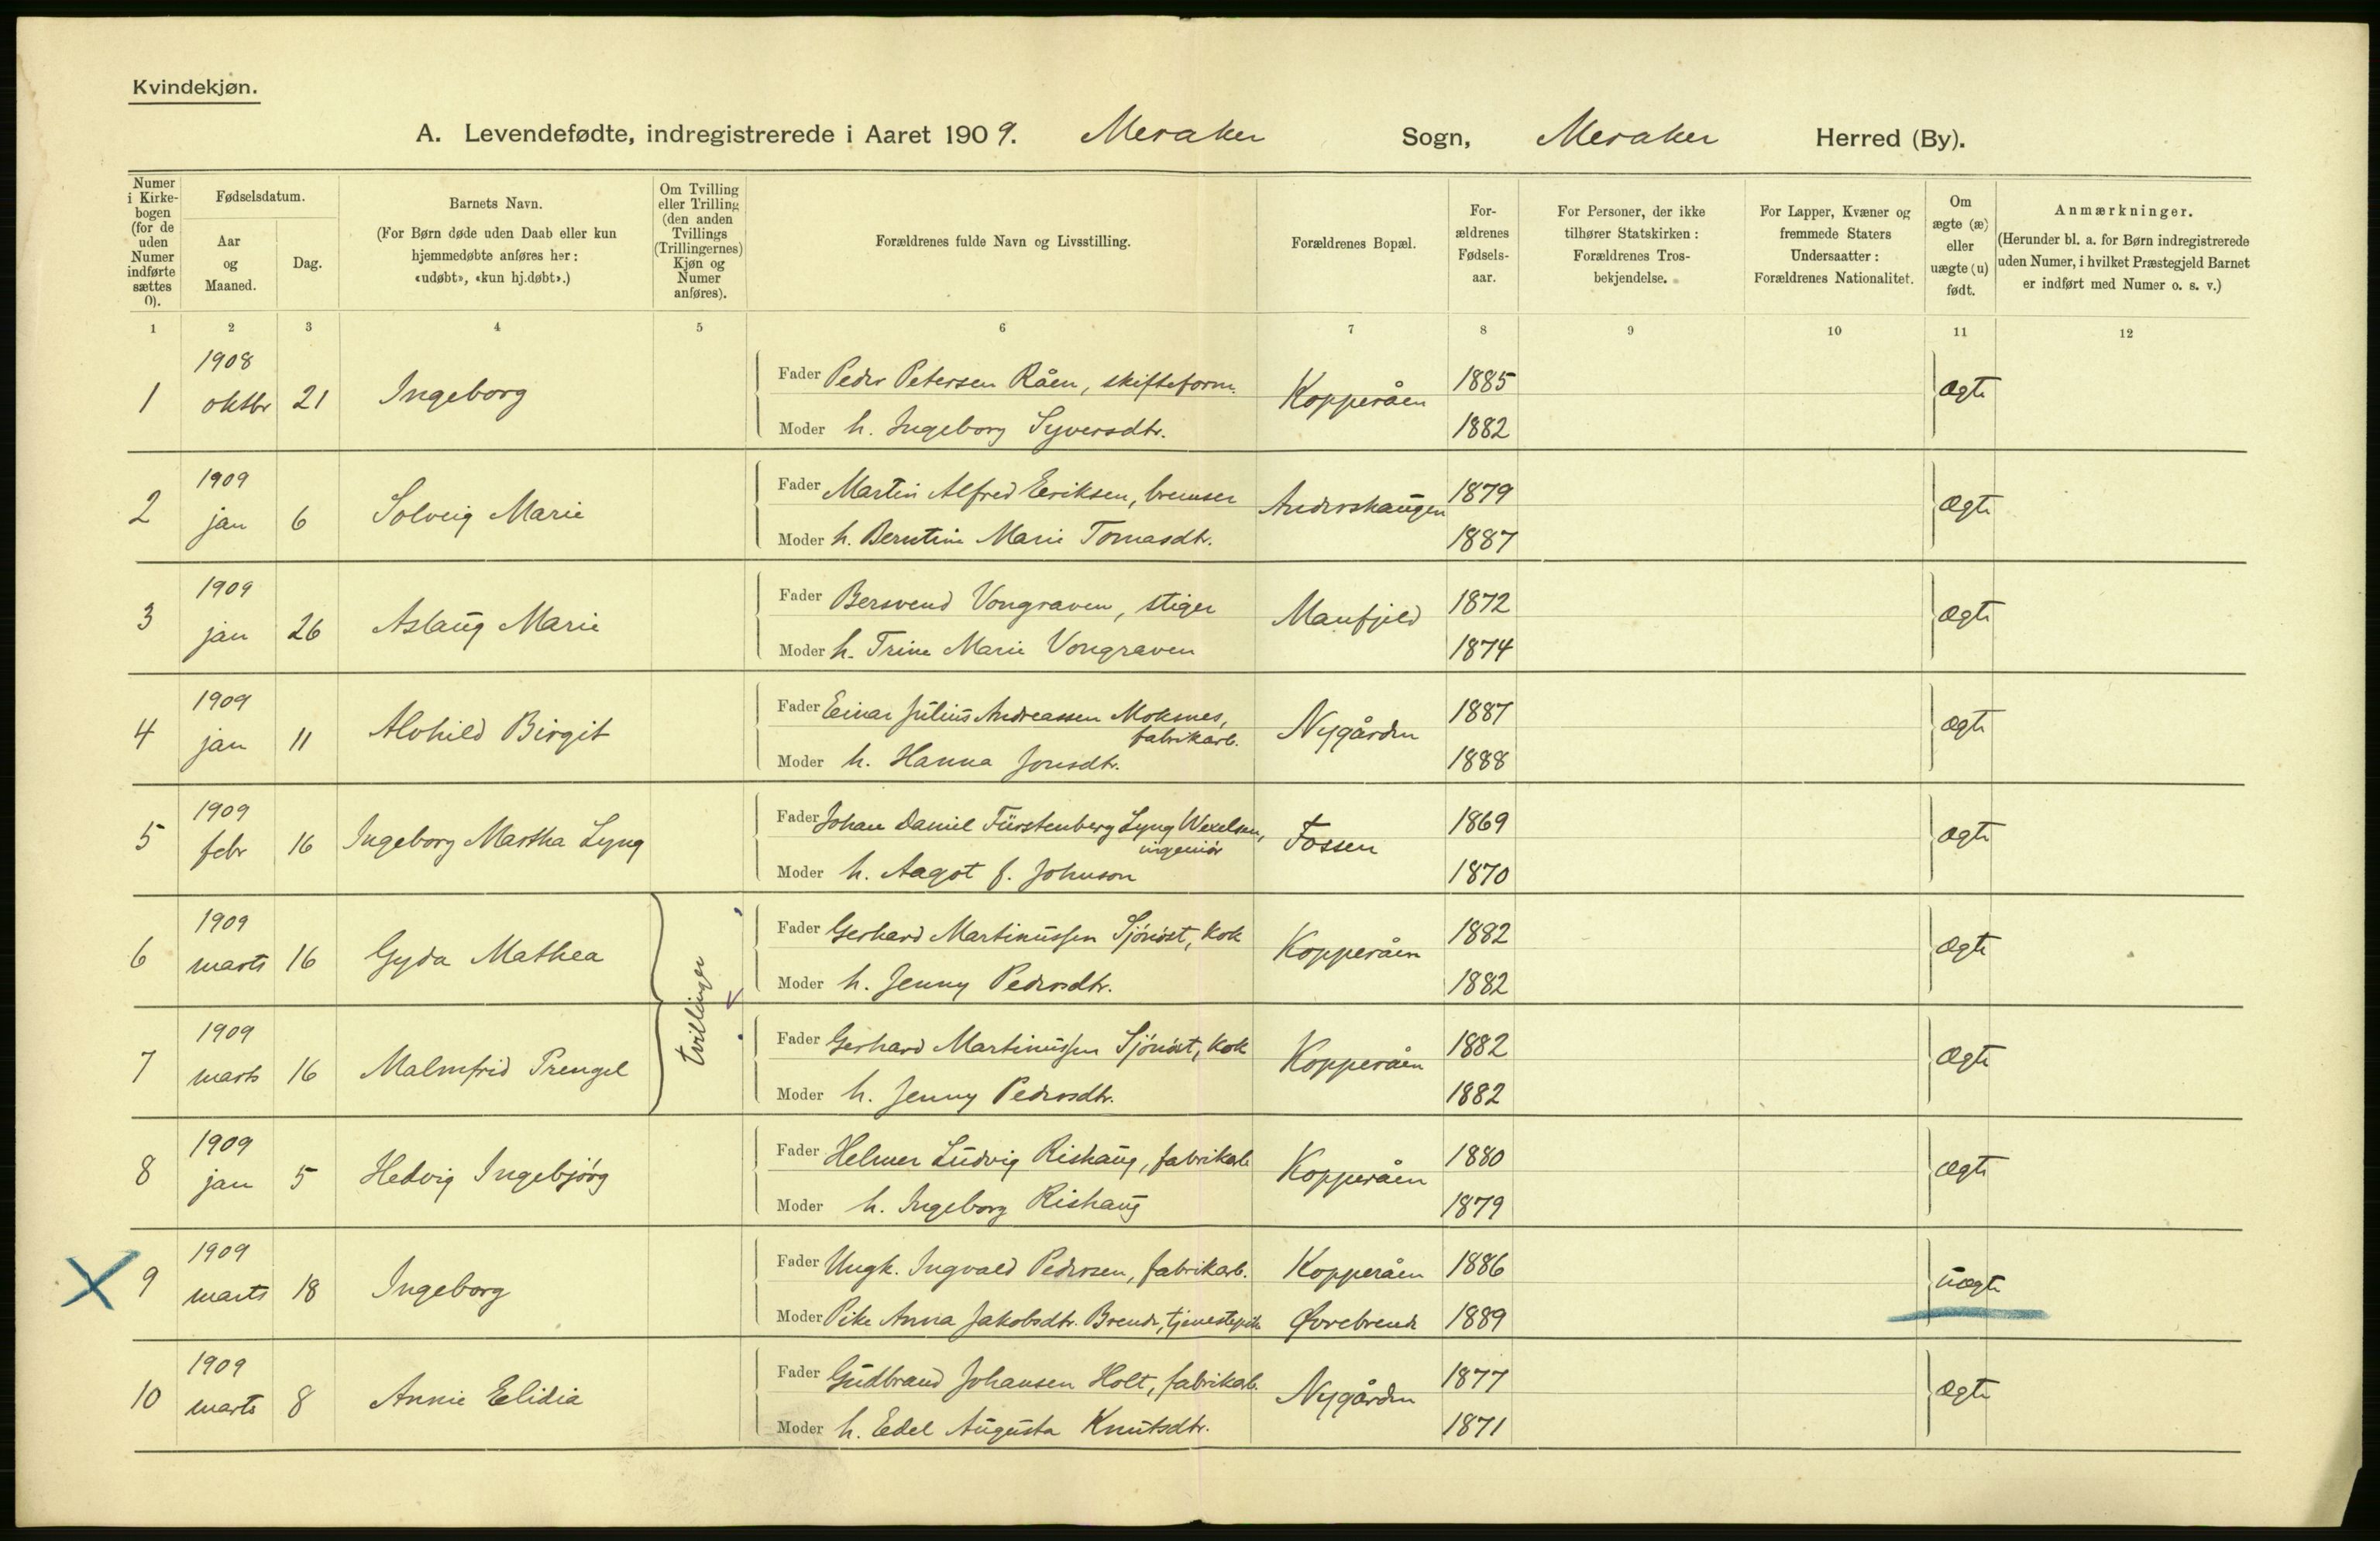 Kvindekjøn.
A. Levendefødte, indregistrerede i Aaret 1909. Meraker Sogn, Meraker Herred (By).
Numer i Kirke-bogen (for de uden Numer indførte sættes 0).
Fødselsdatum.
Aar og Maaned.
Dag.
Barnets Navn.
(For Børn døde uden Daab eller kun hjemmedøbte anføres her: «udøbt», «kun hj.døbt».)
Om Tvilling eller Trilling (den anden Tvillings (Trillingernes) Kjøn og Numer anføres).
Forældrenes fulde Navn og Livsstilling.
Forældrenes Bopæl.
For-ældrenes Fødsels-aar.
For Personer, der ikke tilhører Statskirken: Forældrenes Tros-bekjendelse.
For Lapper, Kvæner og fremmede Staters Undersaatter: Forældrenes Nationalitet.
Om ægte (æ) eller uægte (u) født.
Anmærkninger.
(Herunder bl. a. for Børn indregistrerede uden Numer, i hvilket Præstegjeld Barnet er indført med Numer o. s. v.)
1 2 3 4 5 6 7 8 9 10 11 12
1 1908 oktbr 21 Ingeborg Fader Peder Petersen Råen, skifteform. Kopperåen 1885 ægte
Moder h. Ingeborg Syversdtr. 1882
2 1909 jan 6 Solveig Marie Fader Martin Alfred Eriksen, bremser Andershaugen 1879 ægte
Moder h. Berntine Marie Tomasdtr. 1887
3 1909 jan 26 Aslaug Marie Fader Bersvend Vongraven, stiger Manfjeld 1872 ægte
Moder h. Trine Marie Vongraven 1874
4 1909 jan 11 Alvhild Birgit Fader Einar Julius Andreassen Moksnes, fabrikarb. Nygården 1887 ægte
Moder h. Hanna Jonsdtr. 1888
5 1909 febr 16 Ingeborg Martha Lyng Fader Johan Daniel Fürstenberg Lyng Wexelsen, ingeniör Fossen 1869 ægte
Moder h. Aagot f. Johnson 1870
6 1909 marts 16 Gyda Mathea tvillinger Fader Gerhard Martinussen Sjönöst, kok Kopperåen 1882 ægte
Moder h. Jenny Pedersdtr. 1882
7 1909 marts 16 Malmfrid Prengel Fader Gerhard Martinussen Sjönöst, kok Kopperåen 1882 ægte
Moder h. Jenny Pedersdtr. 1882
8 1909 jan 5 Hedvig Ingebjörg Fader Helmer Ludvig Rishaug, fabrikarb Kopperåen 1880 ægte
Moder h. Ingeborg Rishaug 1879
9 1909 marts 18 Ingeborg Fader Ungk. Ingvald Pedersen, fabrikarb. Kopperåen 1886 uægte
Moder Pike Anna Jakobsdtr. Brende, tjenestepike Øvrebrende 1889
10 1909 marts 8 Annie Elidia Fader Gudbrand Johansen Holt, fabrikarb. Nygården 1877 ægte
Moder h. Edel Augusta Knutsdtr. 1871